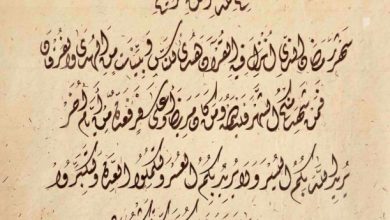 شهر رمضان الذي أنزل فيه القرآن هدى للناس وبينات من الهدى والفرقان
فمن شهد منكم الشهر فليصمه ومن كان مريضا أو على سفر فعدة من أيام أخر
يريد الله بكم اليسر ولا يريد بكم العسر ولتكملوا العدة ولتكبروا